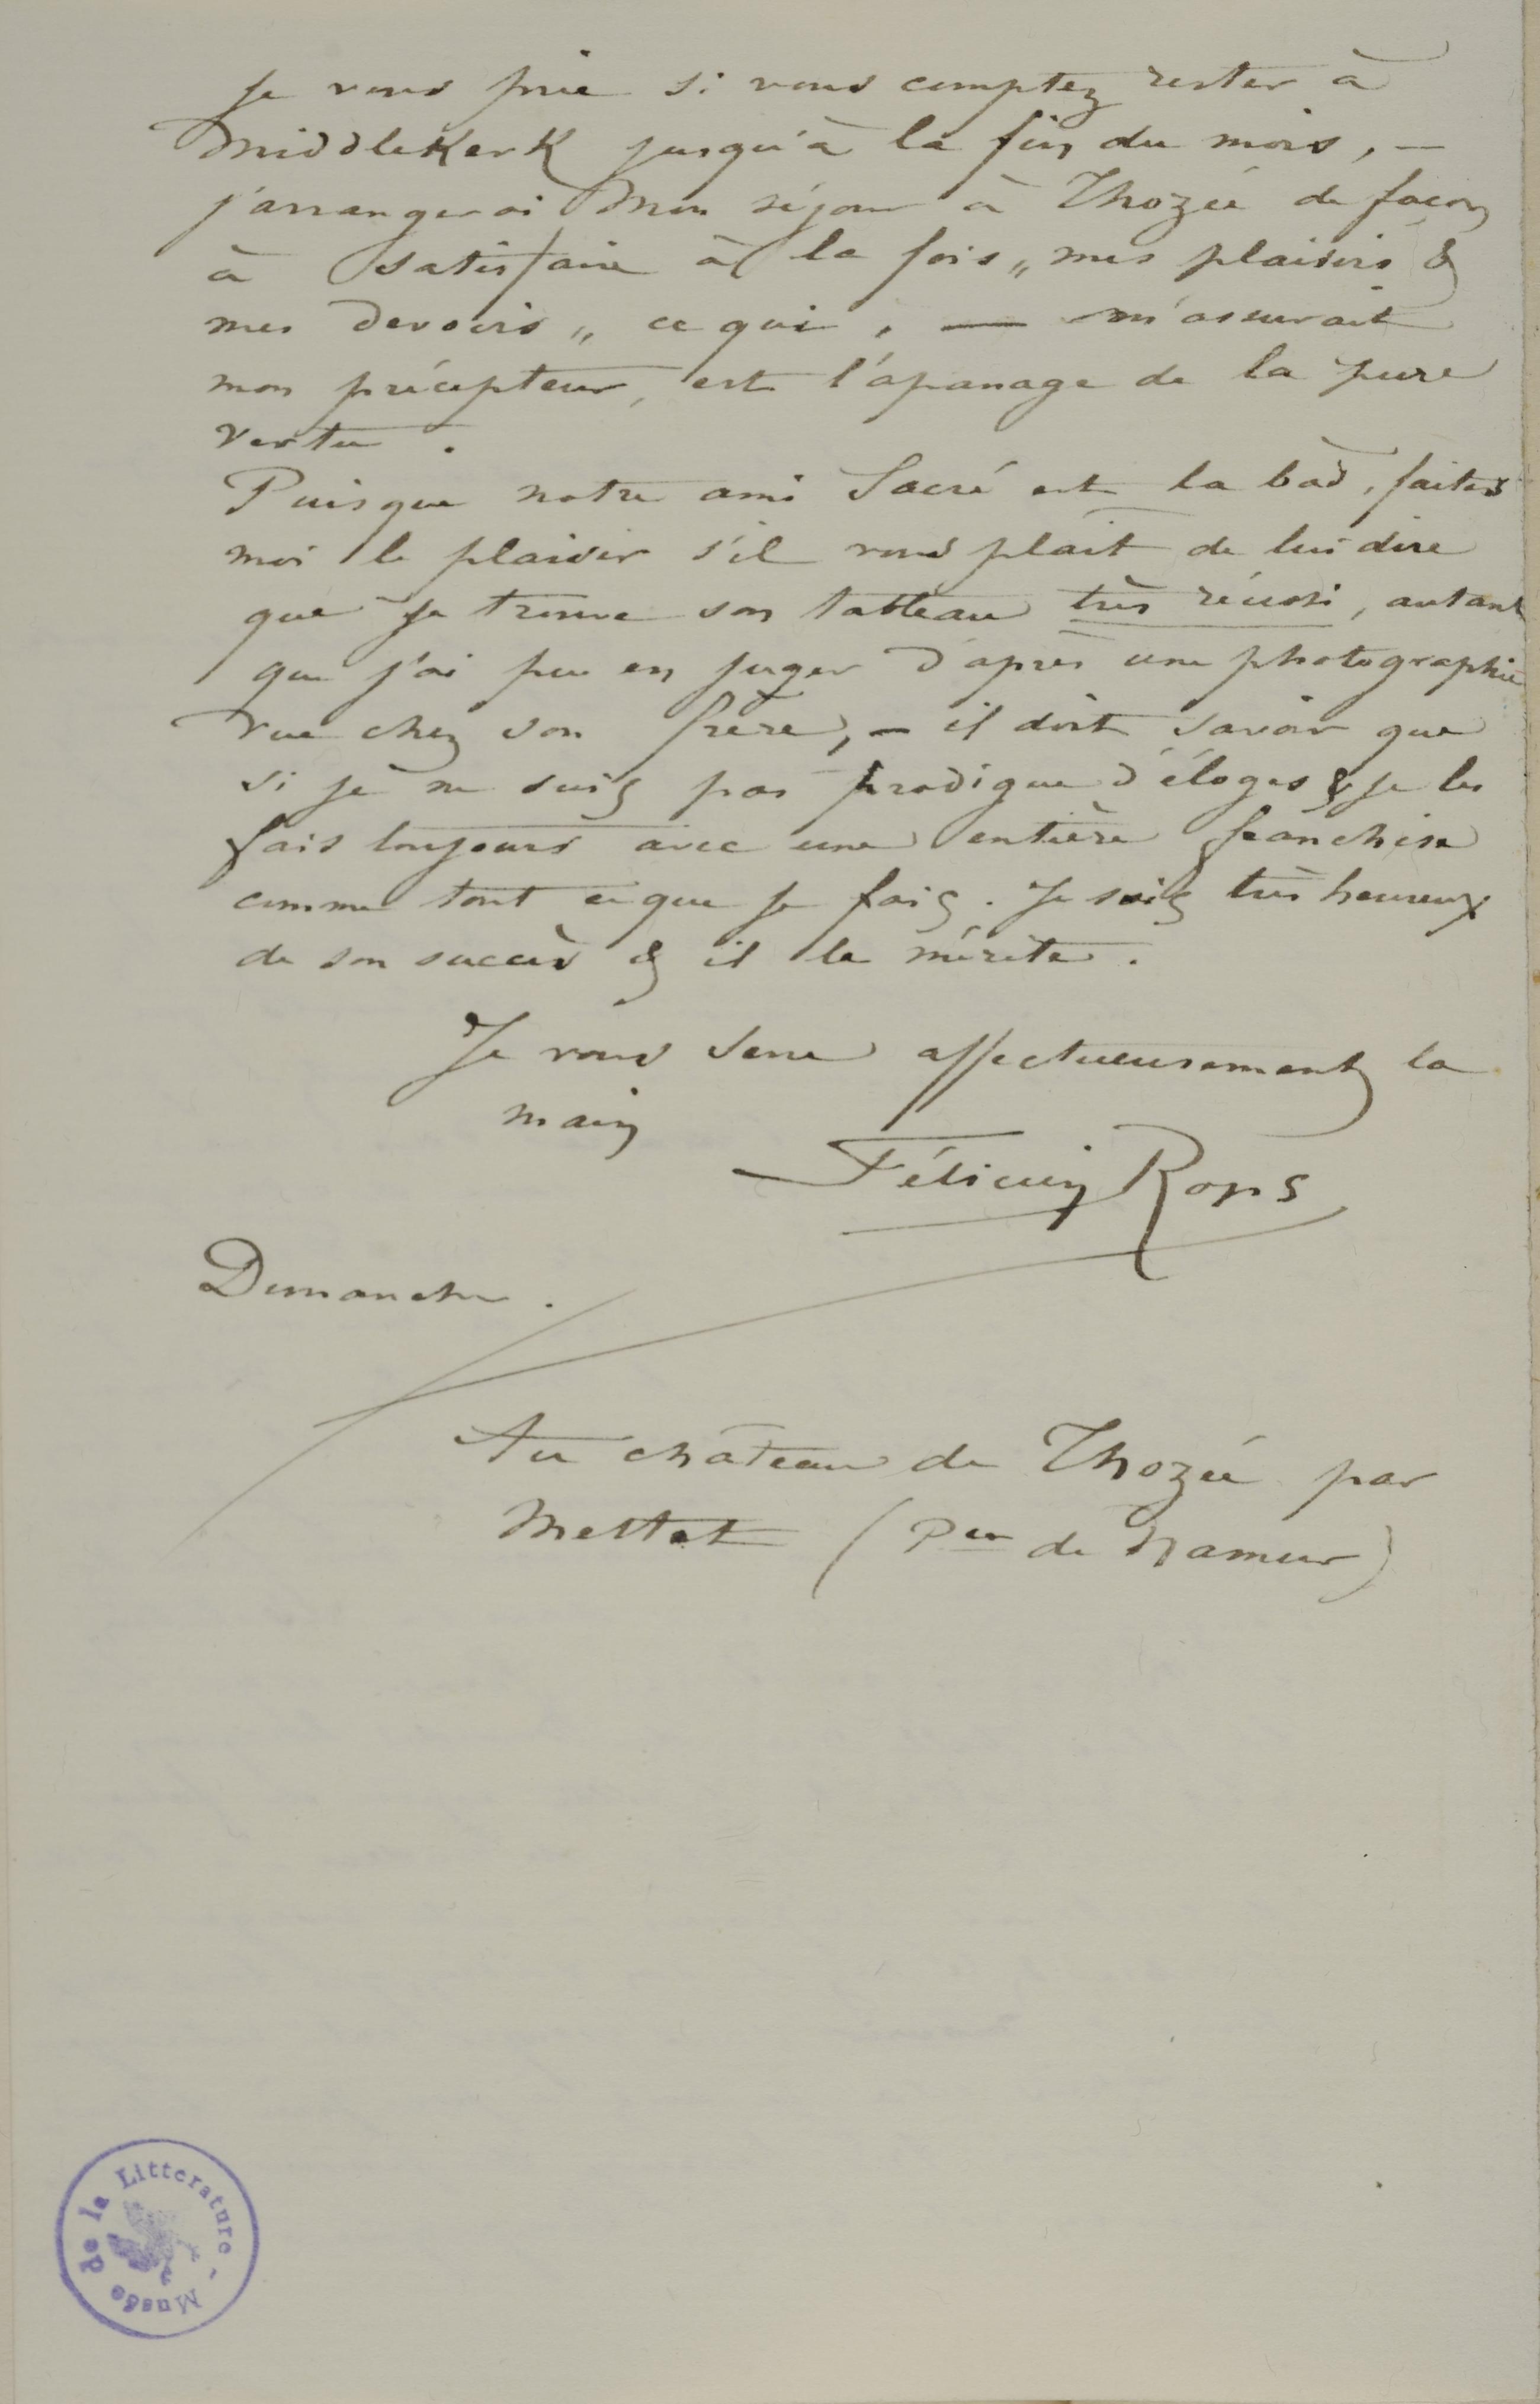 je vous prie si vous comptez rester à
MiddleKerK jusqu'à la fin du mois, —
j'arrangerai mon séjour à Thozée de façon
à satisfaire à la fois „mes plaisirs &
mes devoirs„ ce qui, — m'assurait
mon précepteur, est l'apanage de la pure
vertu.
Puisque notre ami Sacré est la bàs, faites
moi le plaisir s'il vous plait de lui dire
que je trouve son tableau très réussi, autant
que j'ai pu en juger d'après une photographie
vue chez son frère, — il doit savoir que
si je ne suis pas prodigue d'éloges & je les
fais toujours avec une entière franchise
comme tout ce que je fais. Je suis très heureux
de son succès & il le mérite.
Je vous serre affectueusement la
main
Félicien Rops
Dimanche.
Au château de Thozée par
Mettet (Pce de Namur)
Musée de la Littérature -